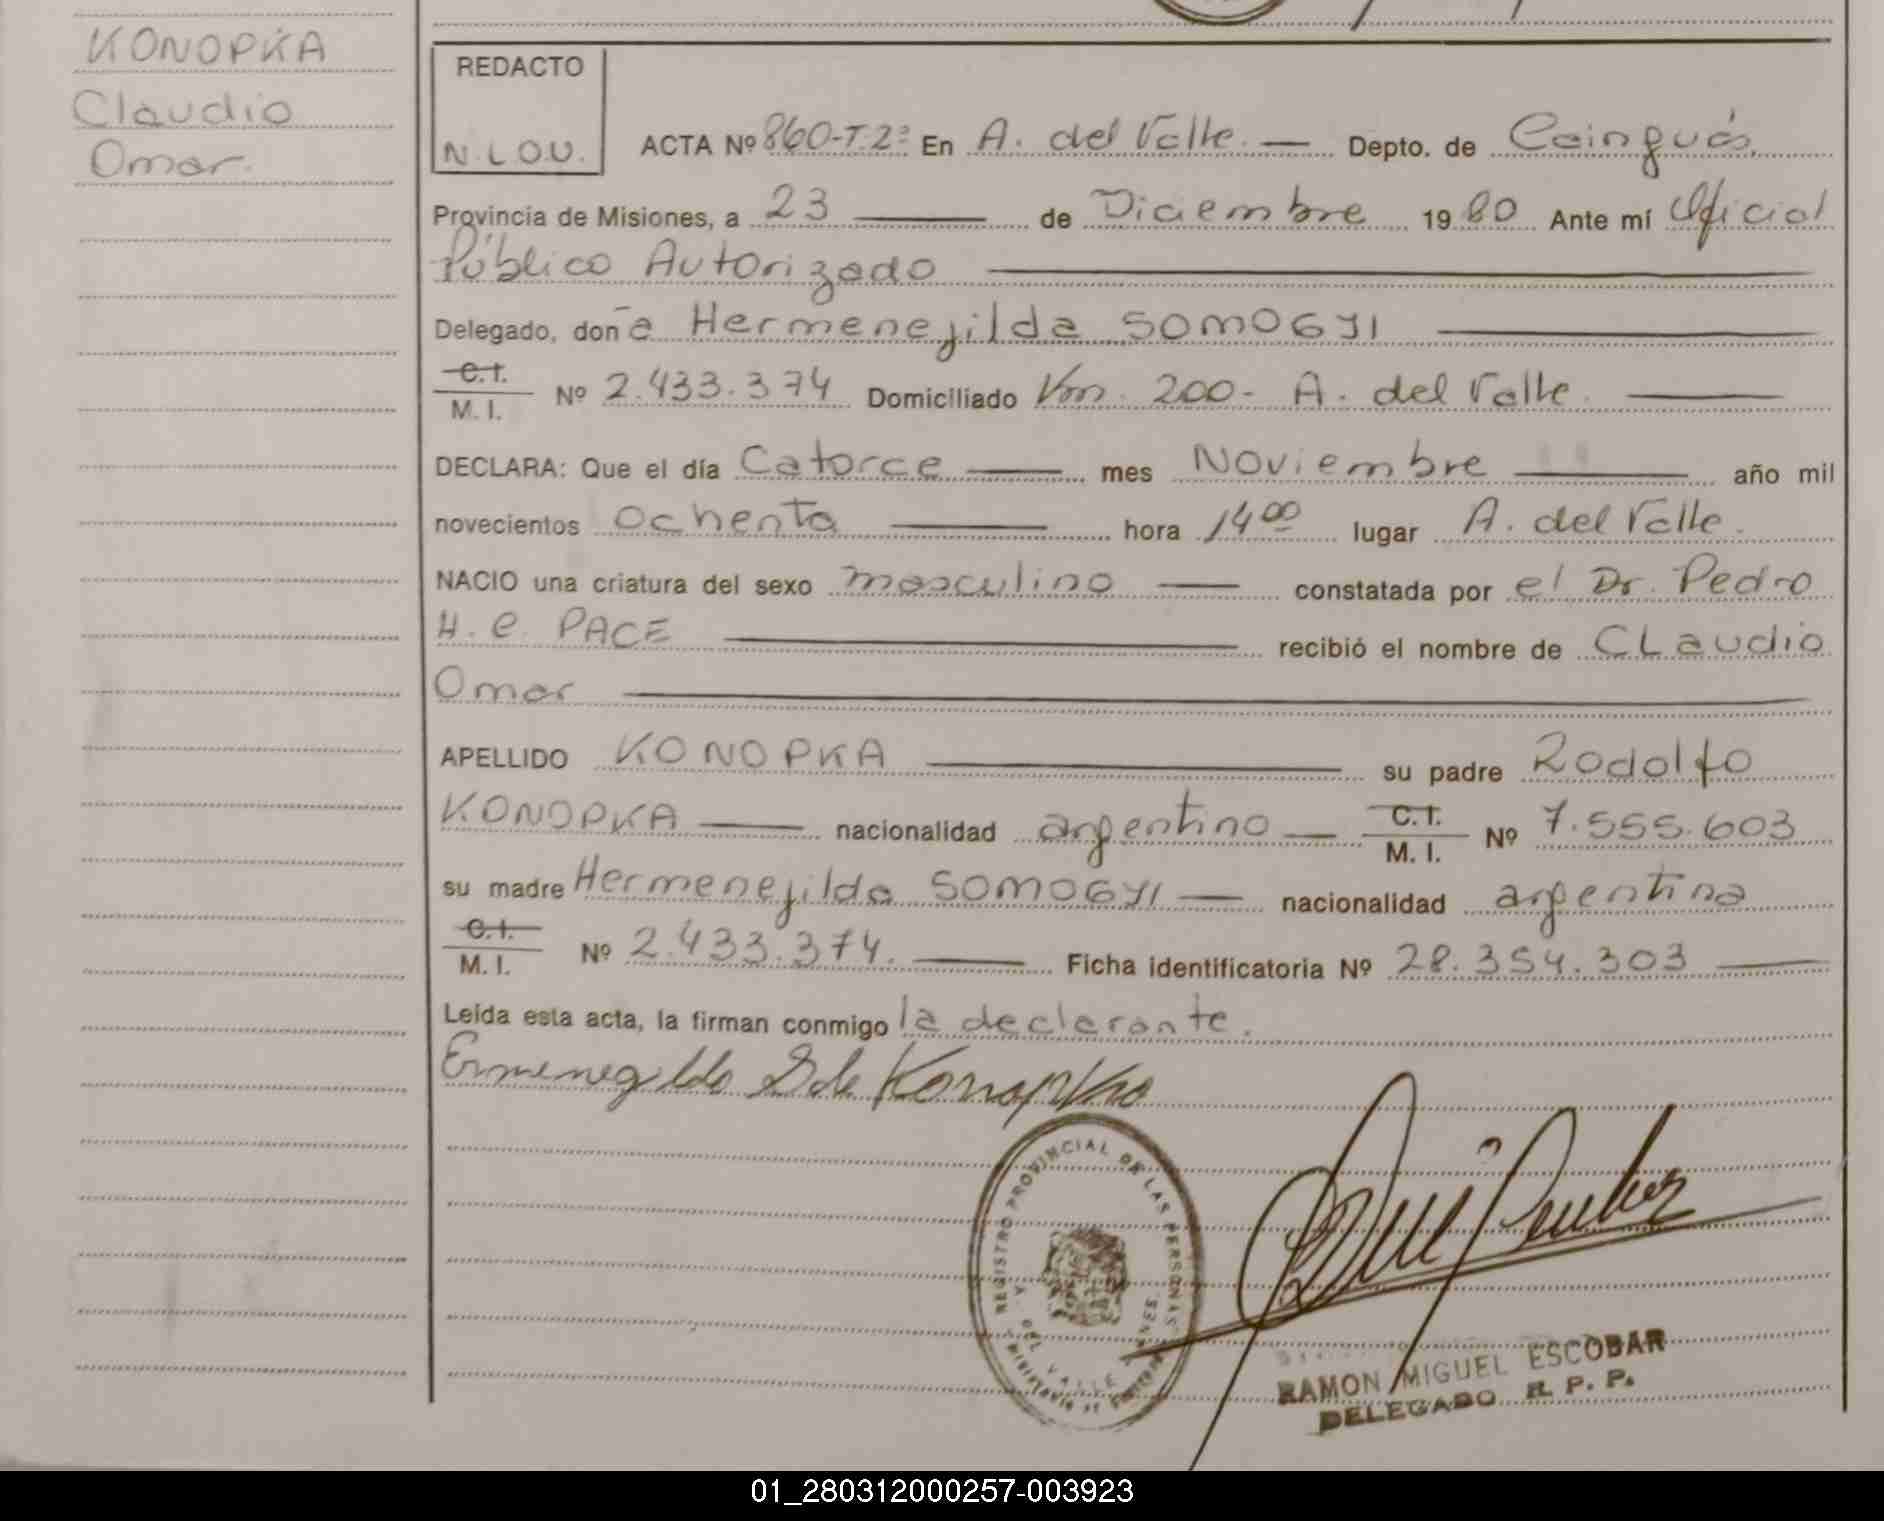 KONOPKA
Claudio
Omar.
REDACTO
N.L.O.V.
ACTA Nº 860-T.2º En A. del Valle. — Depto. de Cainguás.
Provincia de Misiones, a 23 — de Diciembre 1980 Ante mí Oficial
Público Autorizado
Delegado, don ña Hermenejilda SOMOGYI
C.I.
M. I. Nº 2.433.374 Domiciliado Km. 200- A. del Valle.
DECLARA: Que el día Catorce — mes Noviembre — año mil
novecientos Ochenta — hora 14 00 lugar A. del Valle.
NACIO una criatura del sexo masculino — constatada por el Dr. Pedro
H. C. PACE — recibió el nombre de CLaudio
Omar
APELLIDO KONOPKA — su padre Rodolfo
KONOPKA — nacionalidad argentino — C.I. M. I. Nº 7.555.603
su madre Hermenejilda SOMOGYI — nacionalidad argentina
C.I.
M. I. Nº 2.433.374. — Ficha identificatoria Nº 28.354.303 —
Leída esta acta, la firman conmigo la declarante.
Ermenegilda S de Konopka
REGISTRO PROVINCIAL DE LAS PERSONAS
DEL VALLE
RAMON MIGUEL ESCOBAR
DELEGADO R. P. P.
01_280312000257-003923